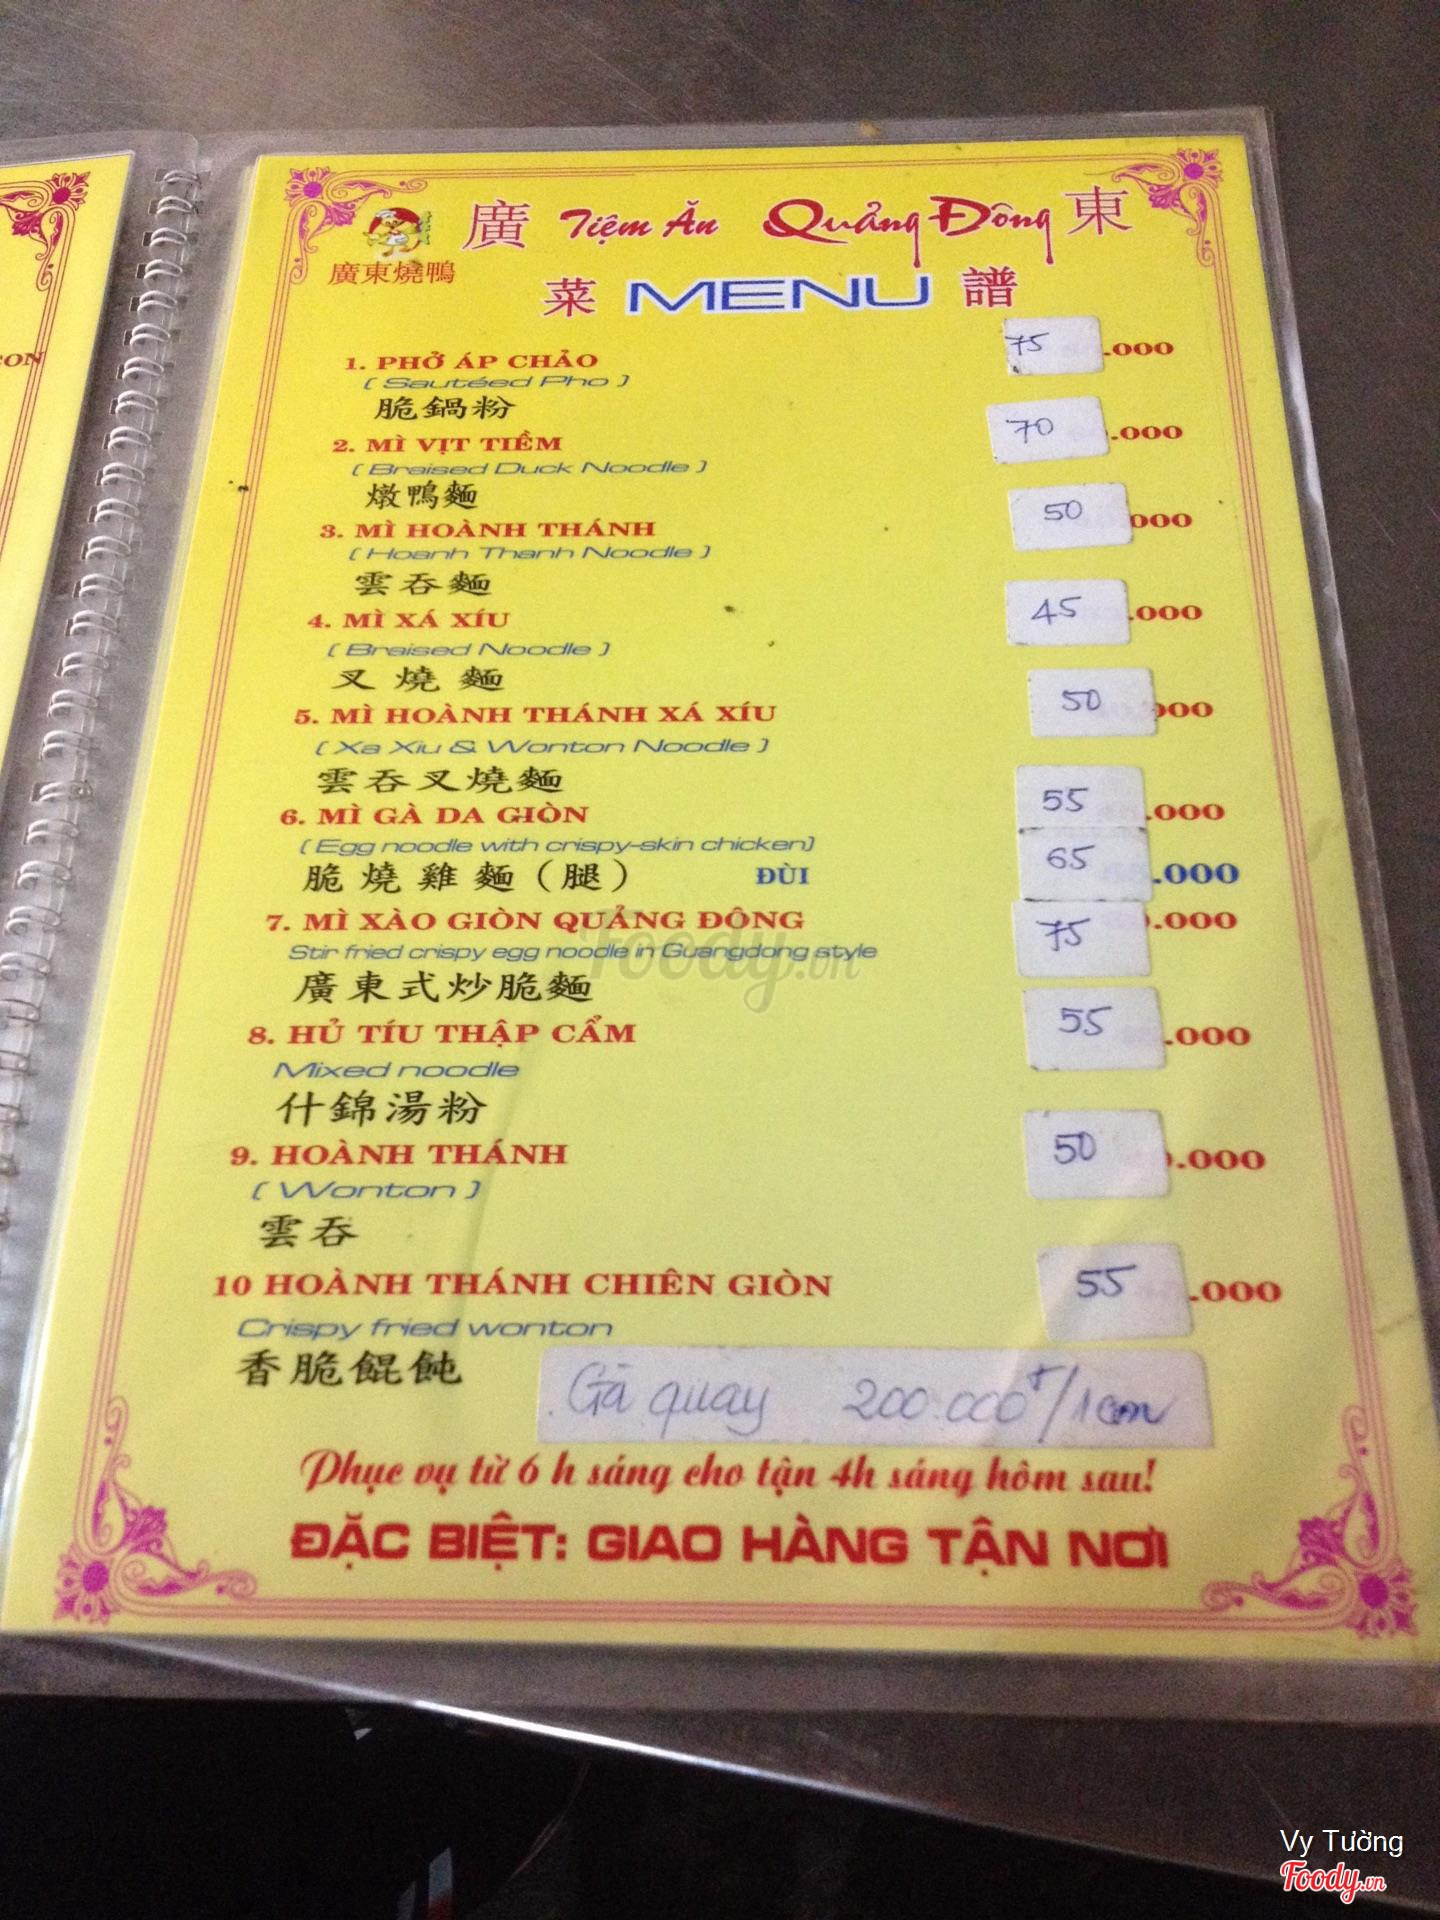 CON
廣 Tiệm Ăn Quảng Đông 東
廣東燒鴨
菜 MENU 譜
1. PHỞ ÁP CHẢO 75 .000
( Sautéed Pho )
脆鍋粉
2. MÌ VỊT TIỀM 70 .000
( Braised Duck Noodle )
燉鴨麵
3. MÌ HOÀNH THÁNH 50 000
( Hoanh Thanh Noodle )
雲吞麵
4. MÌ XÁ XÍU 45 .000
( Braised Noodle )
叉燒麵
5. MÌ HOÀNH THÁNH XÁ XÍU 50 000
( Xa Xiu & Wonton Noodle )
雲吞叉燒麵
6. MÌ GÀ DA GIÒN 55 .000
( Egg noodle with crispy-skin chicken)
脆燒雞麵（腿） ĐÙI 65 .000
7. MÌ XÀO GIÒN QUẢNG ĐÔNG 75 .000
Stir fried crispy egg noodle in Guangdong style
廣東式炒脆麵
8. HỦ TÍU THẬP CẨM 55 .000
Mixed noodle
什錦湯粉
9. HOÀNH THÁNH 50 .000
( Wonton )
雲吞
10 HOÀNH THÁNH CHIÊN GIÒN 55 .000
Crispy fried wonton
香脆餛飩
Gà quay 200.000đ/1con
Phục vụ từ 6 h sáng cho tận 4h sáng hôm sau!
ĐẶC BIỆT: GIAO HÀNG TẬN NƠI
Foody.vn
Vy Tường
Foody.vn